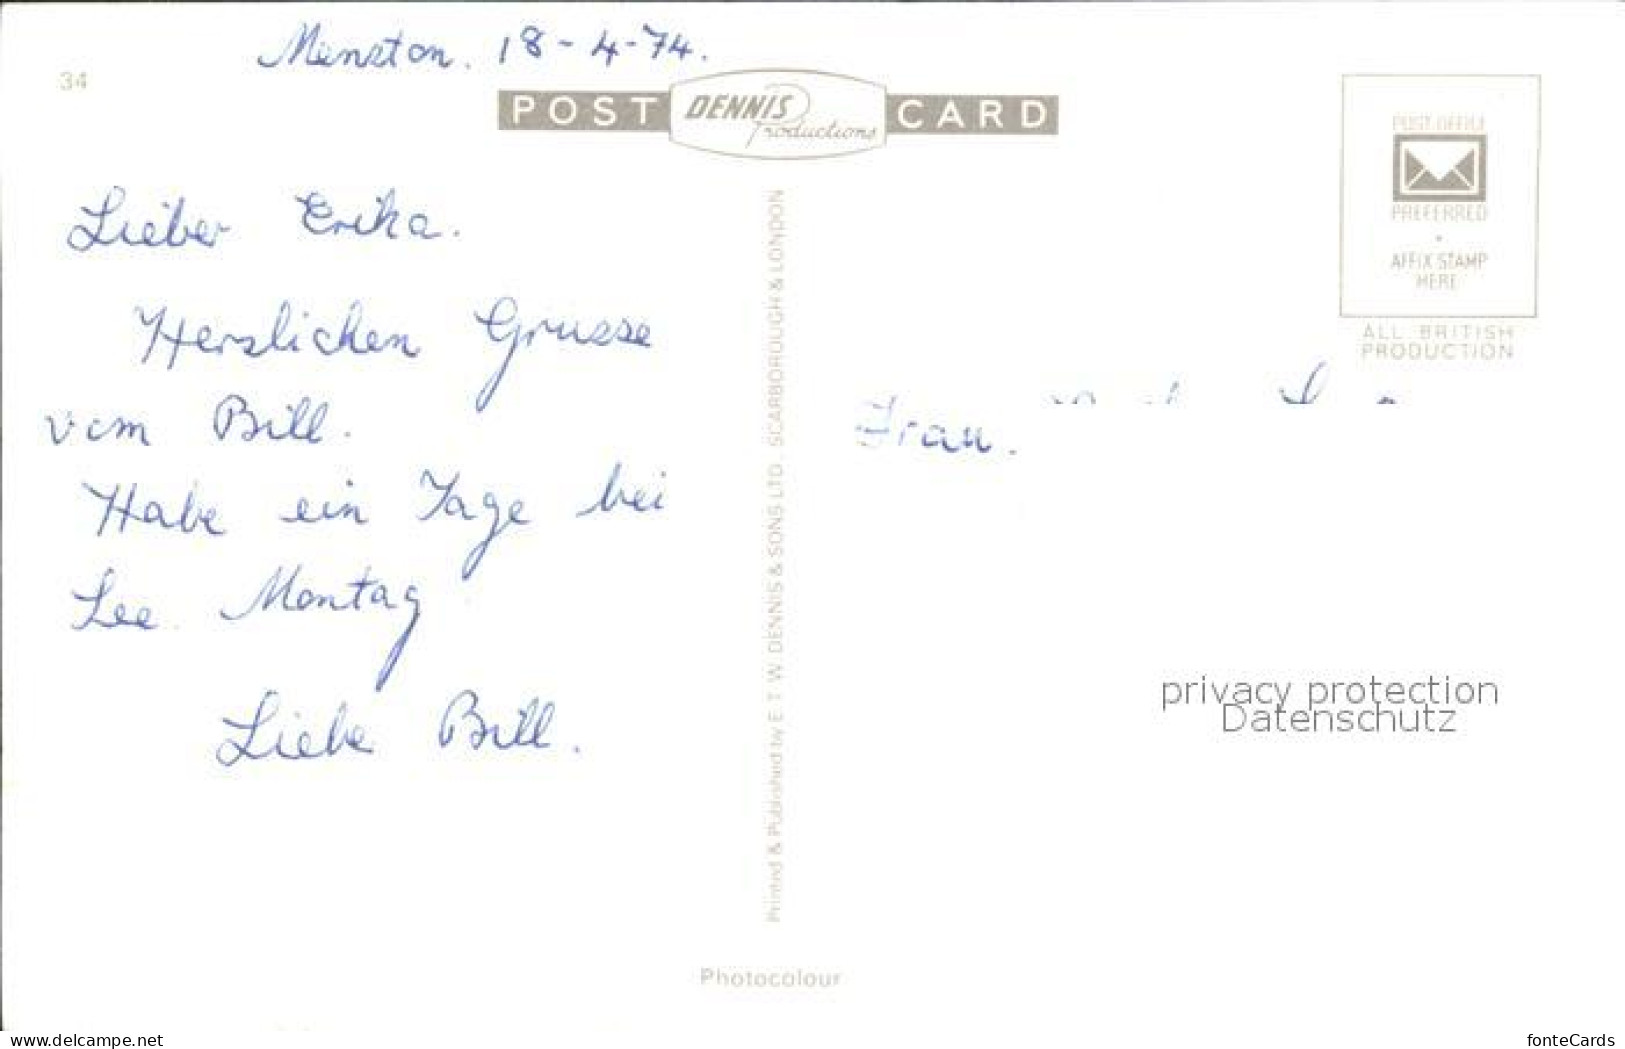 Menston. 18-4-74.
34
POST DENNIS Productions CARD
POST OFFICE
PREFERRED
AFFIX STAMP
HERE
ALL BRITISH
PRODUCTION
Lieber Erika.
Herzlichen Grusse
vom Bill.
Habe ein Tage bei
See. Montag
Liebe Bill.
Printed & Published by E. T. W. DENNIS & SONS LTD., SCARBOROUGH & LONDON
Frau.
privacy protection
Datenschutz
Photocolour
www.delcampe.net
fonteCards